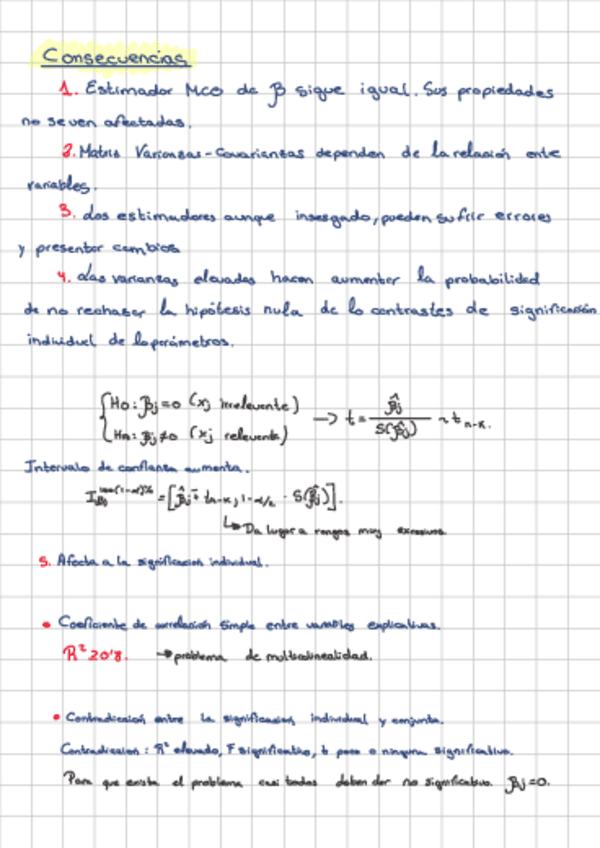 Consecuencias
1. Estimador MCO de β sigue igual. Sus propiedades
no se ven afectadas.
2. Matriz Varianzas-Covarianzas dependen de la relación ente
variables.
3. Los estimadores aunque insesgado, pueden sufrir errores
y presentar cambios
4. Las varianzas elevadas hacen aumentar la probabilidad
de no rechazar la hipótesis nula de lo contrastes de significación
individuel de lo parámetros.
{H0: βj=0 (xj irrelevante) → t = β̂j / S(β̂j) ~ t n-k.
Ha: βj≠0 (xj relevente)
Intervalo de confianza aumenta.
I βj 100(1-α)% = [β̂j ∓ t n-k, 1-α/2 · S(β̂j)].
↳ Da lugar a rangos muy excesivos
5. Afecta a la significacion individual.
• Coeficiente de correlación simple entre variables explicativas.
R² ≥ 0'8. → problema de multicolinealidad.
• Contradiccion entre la significacion individual y conjunta.
Contradiccion: R² elevado, F significativo, t poco o ninguna significativa.
Para que exista el problema casi todas deben der no significativo. βj=0.